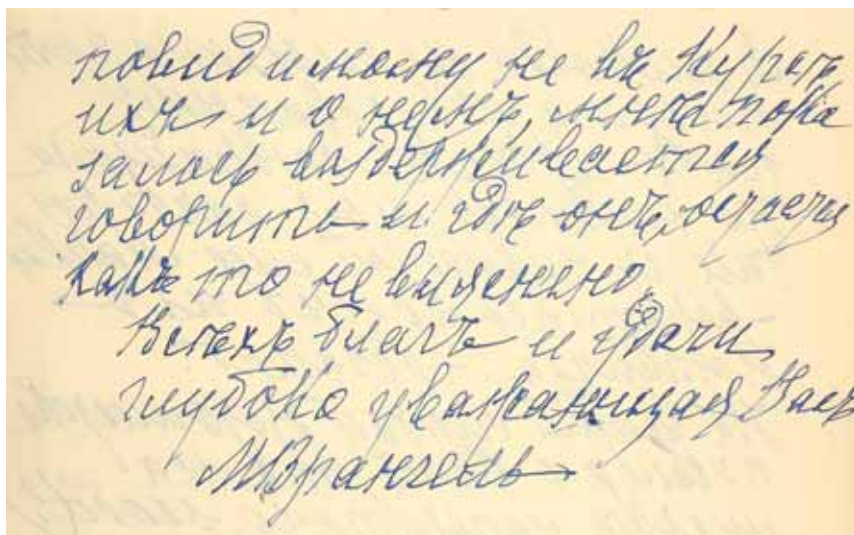 повидимому не въ Курсѣ
ихъ и о немъ, мнѣ пока
залось воздерживается
говорить и гдѣ онъ, остается
какъ то не выяснено.
Всѣхъ благъ и удачи
глубоко уважающая Васъ
МВрангель